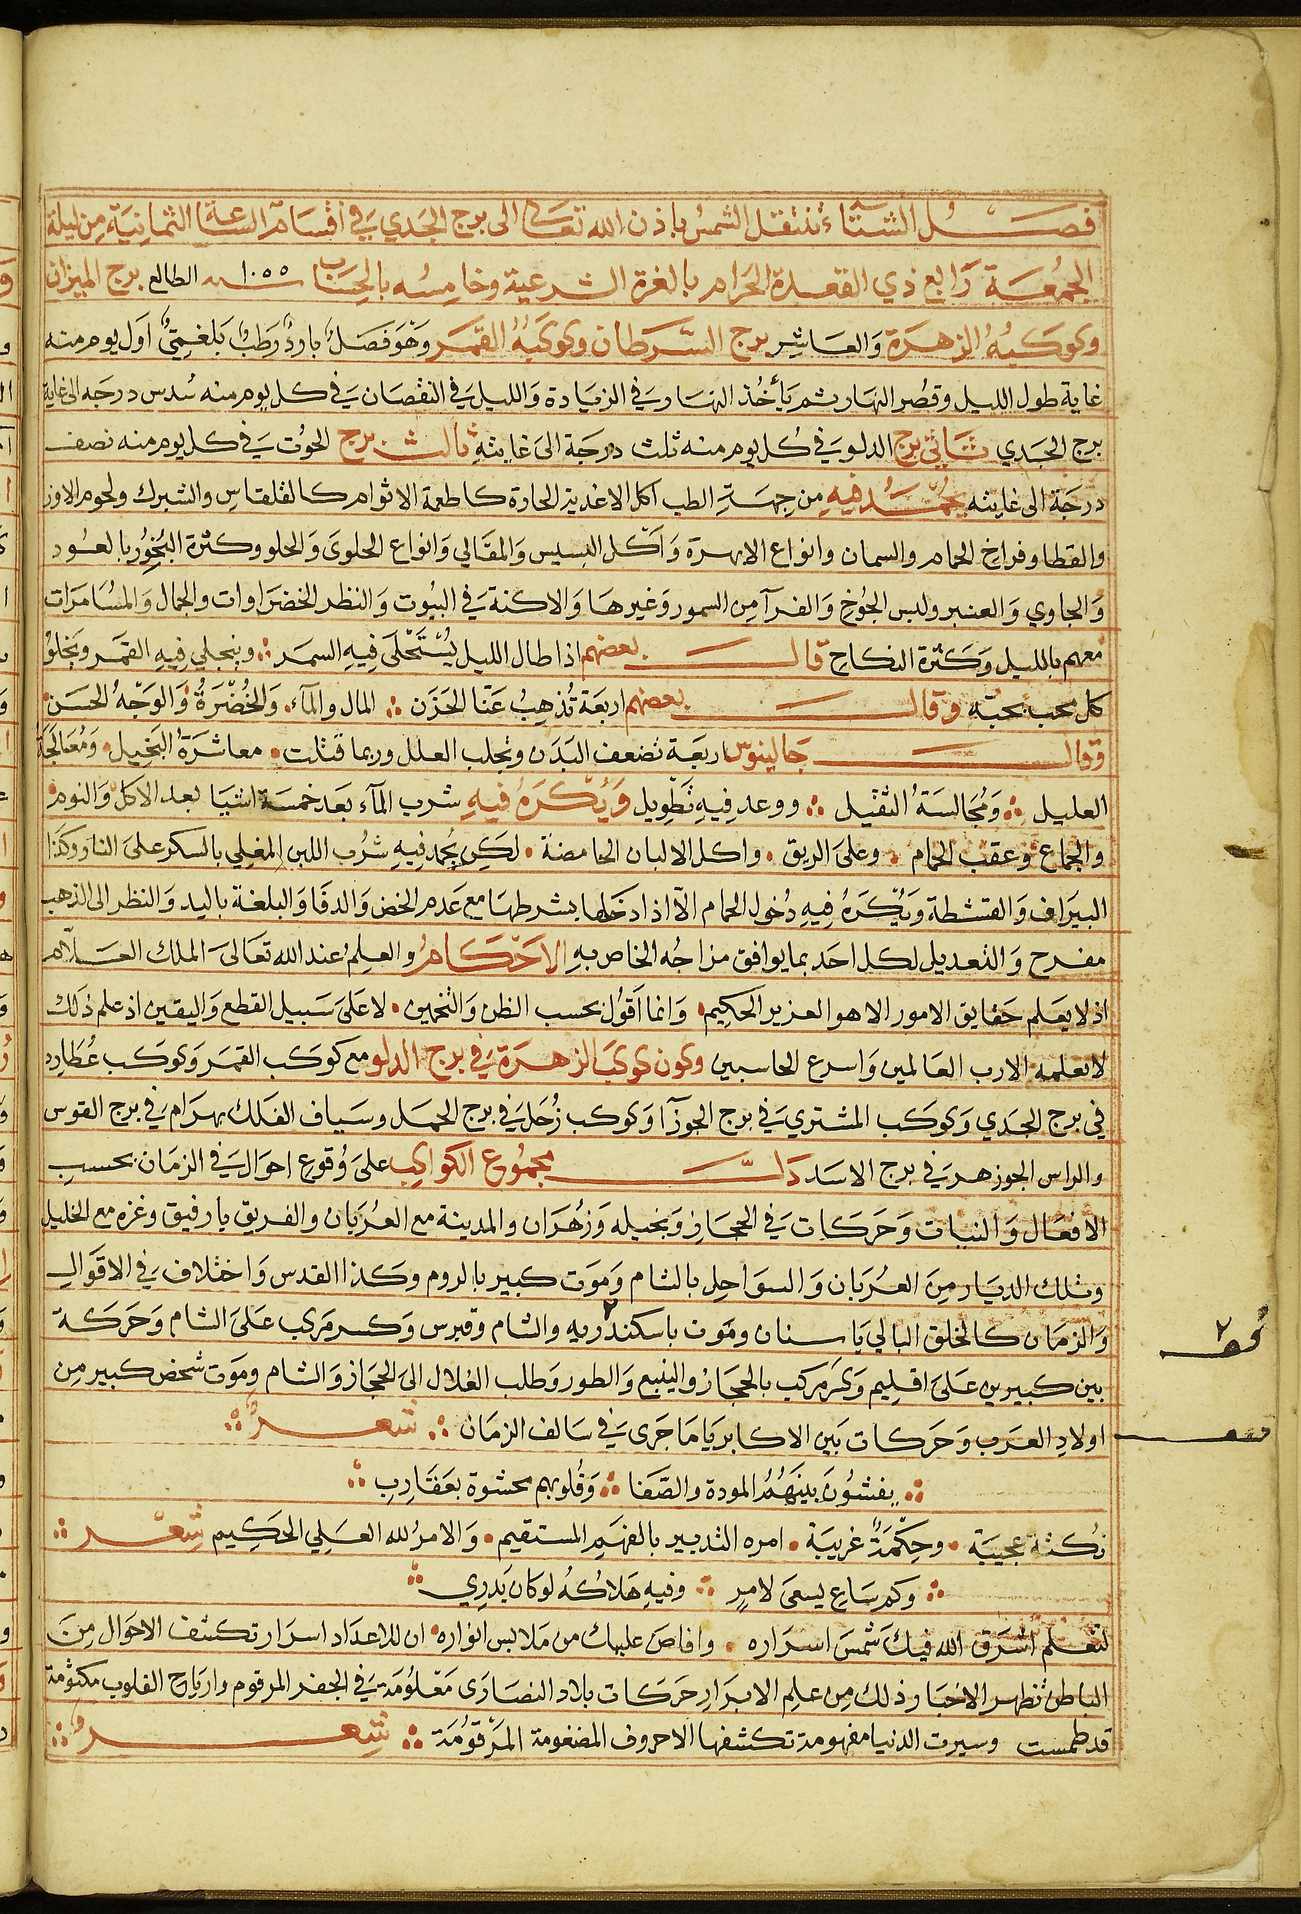 فصل الشتاء تنتقل الشمس باذن الله تعالى الى برج الجدي في اقسام الساعة الثمانية من ليلة
الجمعة رابع ذي القعدة الحرام بالغرة الشرعية وخامسه بالحساب سنه ١٠٥٥ الطالع برج الميزان
وكوكبه الزهرة والعاشر برج السرطان وكوكبه القمر وهو فصل بارد رطب بلغمي اول يوم منه
غاية طول الليل وقصر النهار ثم يأخذ النهار في الزيادة والليل في النقصان في كل يوم منه سدس درجه الى غاية
برج الجدي ثاني برج الدلو في كل يوم منه ثلث درجة الى غايته ثالث برج الحوت في كل يوم منه نصف
درجة الى غايته يحمد فيه من جهة الطب اكل الاغذية الحارة كاطعمة الاثوام كالقلقاس والشبرك ولحوم الاوز
والقطا وفراخ الحمام والسمان وانواع الابهرة واكل البسيس والمقالي وانواع الحلوى والحلو وكثرة البخور بالعود
والجاوي والعنبر ولبس الجوخ والفرآ من السمور وغيرها والاكنة في البيوت والنظر الخضراوات والجمال والمسامرات
معهم بالليل وكثرة النكاح قال بعضهم اذا طال الليل يستحلى فيه السمر وينجلي فيه القمر ويخلو
كل محب بمحبه وقال بعضهم اربعة تذهب عنا الحزن المال والمآء والخضرة والوجه الحسن
وقال جالينوس اربعة تضعف البدن وتجلب العلل وربما قتلت معاشرة البخيل ومعالجة
العليل ومجالسة الثقيل ووعد فيه تطويل ويكره فيه شرب المآء بعد خمسة اشيا بعد الاكل والنوم
والجماع وعقب الحمام وعلى الريق واكل الالبان الحامضة لكن يحمد فيه شرب اللبن المغلي بالسكر على النار وكذا
البيراف والقشطة ويكره فيه دخول الحمام الآ اذا دخلها بشرطها مع عدم الخض والدفا والبلغة باليد والنظر الى الذهب
مفرح والتعديل لكل احد بما يوافق مزاجه الخاص به الاحكام والعلم عند الله تعالى الملك العلام
اذ لا يعلم حقايق الامور الا هو العزيز الحكيم وانما اقول بحسب الظن والتخمين لا على سبيل القطع واليقين اذ علم ذلك
لا يعلمه الا رب العالمين واسرع الحاسبين وكون كوكب الزهرة في برج الدلو مع كوكب القمر وكوكب عطارد
في برج الجدي وكوكب المشتري في برج الجوزآ وكوكب زحل في برج الحمل وسياف الفلك بهرام في برج القوس
والراس الجوزهر في برج الاسد دلت مجموع الكواكب على وقوع احوال في الزمان بحسب
الافعال والنبات وحركات في الحجاز وبخيله وزهران والمدينة مع العربان والفريق يا رفيق وغزه مع الخليل
وتلك الديار من العربان والسواحل بالشام وموت كبير بالروم وكذا القدس واختلاف في الاقوال
والزمان كالخلق البالي ياسنان وموت باسكندريه والشام وقبرس وكسر مركب على الشام وحركة
بين كبيرين على اقليم وكسر مركب بالحجاز والينبع والطور وطلب الغلال الى الحجاز والشام وموت شخص كبير من
اولاد العرب وحركات بين الاكابر ياما جرى في سالف الزمان شعر
يفشون بينهم المودة والصفا وقلوبهم محشوة بعقارب
نكتة عجيبة وحكمة غريبة امره التدبير بالفهم المستقيم والامر لله العلي الحكيم شعر
وكم ساع يسعى لامر وفيه هلاكه لو كان يدري
لتعلم اشرق الله فيك شمس اسراره وافاض عليك من ملابس انواره ان للاعداد اسرار تكشف الاحوال من
الباطن تظهر الاخبار وذلك من علم الابرار حركات بلاد النصارى معلومة في الجفر المرقوم وارياح القلوب مكتومة
قد طمست وسيرت الدنيا مفهومة تكشفها الاحروف المضغومة المرقومة شعر